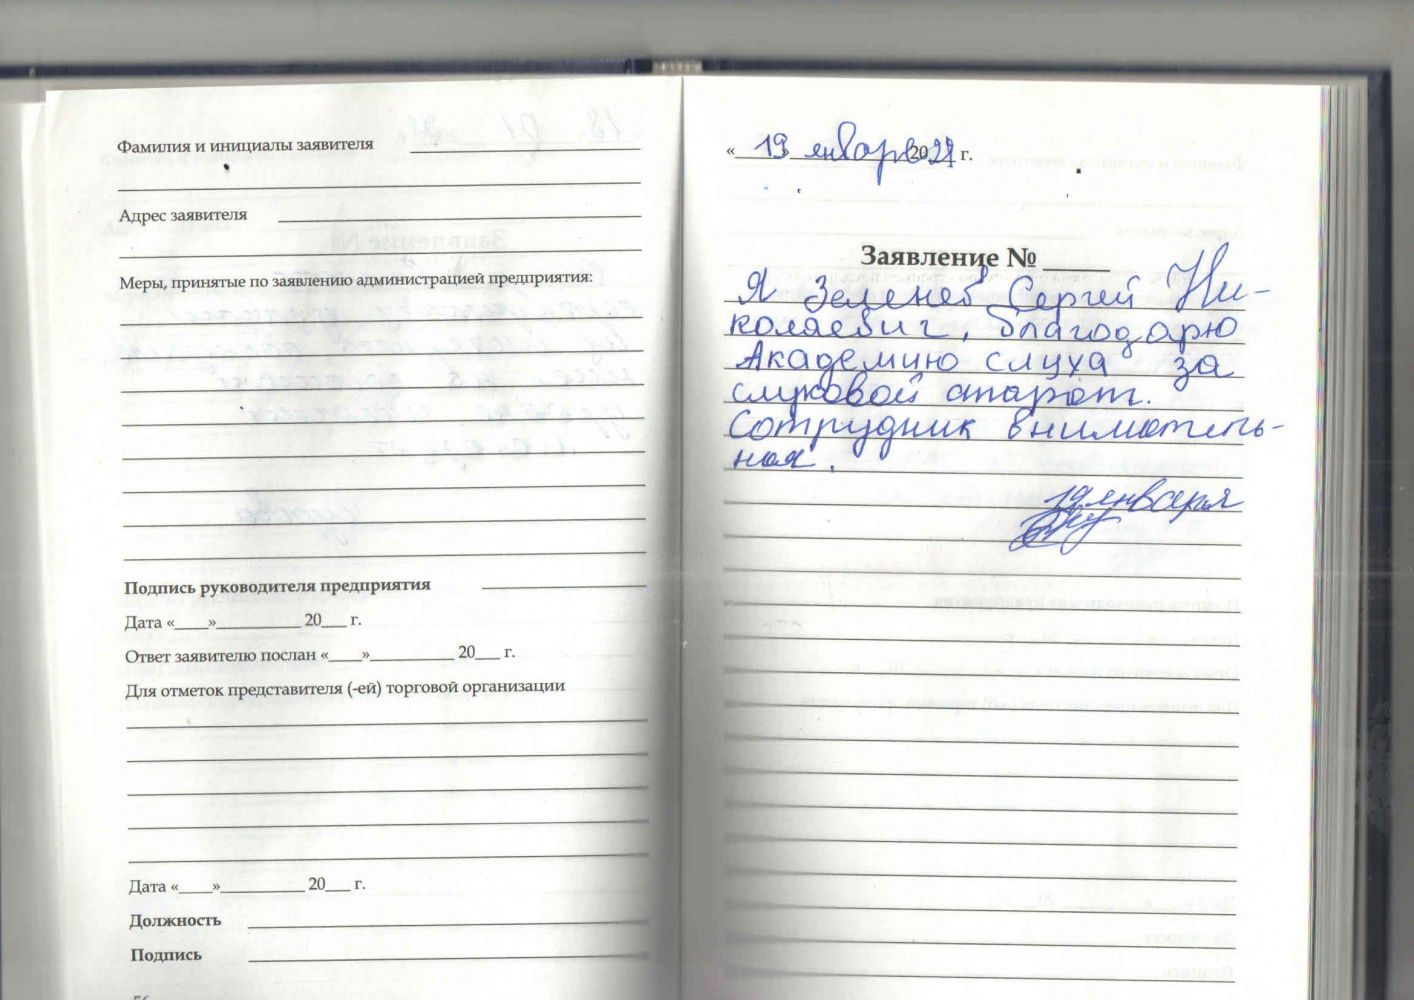 Фамилия и инициалы заявителя
Адрес заявителя
Меры, принятые по заявлению администрацией предприятия:
Подпись руководителя предприятия
Дата «___»__________ 20___ г.
Ответ заявителю послан «___»__________ 20___ г.
Для отметок представителя (-ей) торговой организации
Дата «___»__________ 20___ г.
Должность
Подпись
« 19 января 2021 г.
Заявление № ____
Я Зеленев Сергей Ни-
колаевич, благодарю
Академию слуха за
слуховой апарат.
Сотрудник вниматель-
ная.
19 января